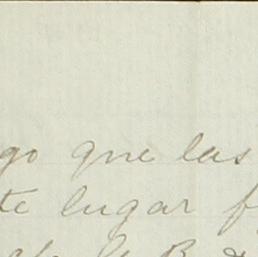 go que las
te lugar f